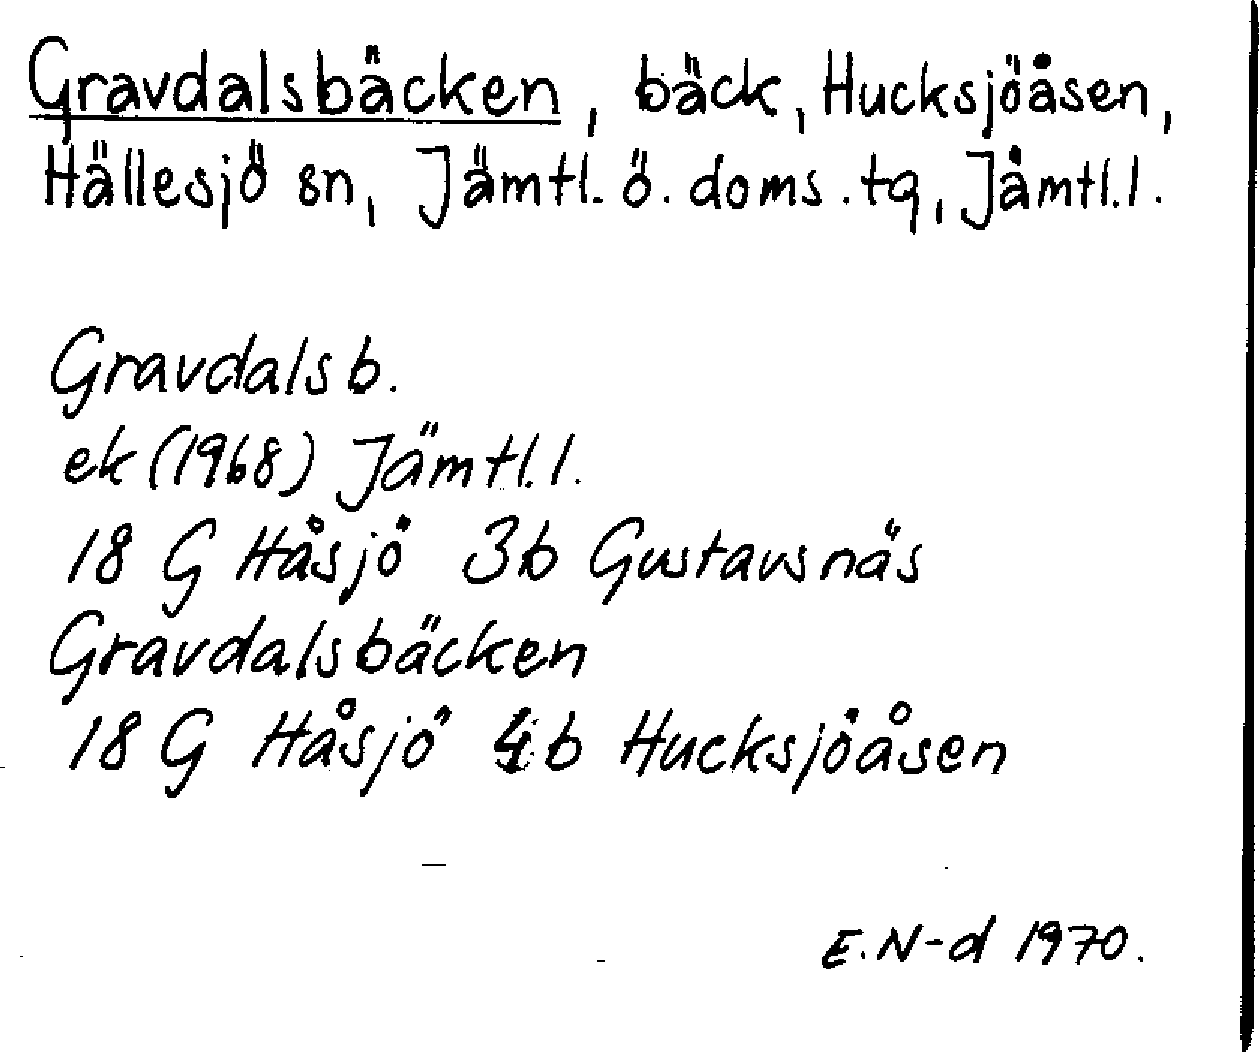 Gravdalsbäcken, bäck, Hucksjöåsen,
Hällesjö sn, Jämtl. ö. doms. tg, Jämtl. l.
Gravdalsb.
ek (1968) Jämtl. l.
18 G Håsjö 3b Gustavsnäs
Gravdalsbäcken
18 G Håsjö 4b Hucksjöåsen
E. N-d 1970.